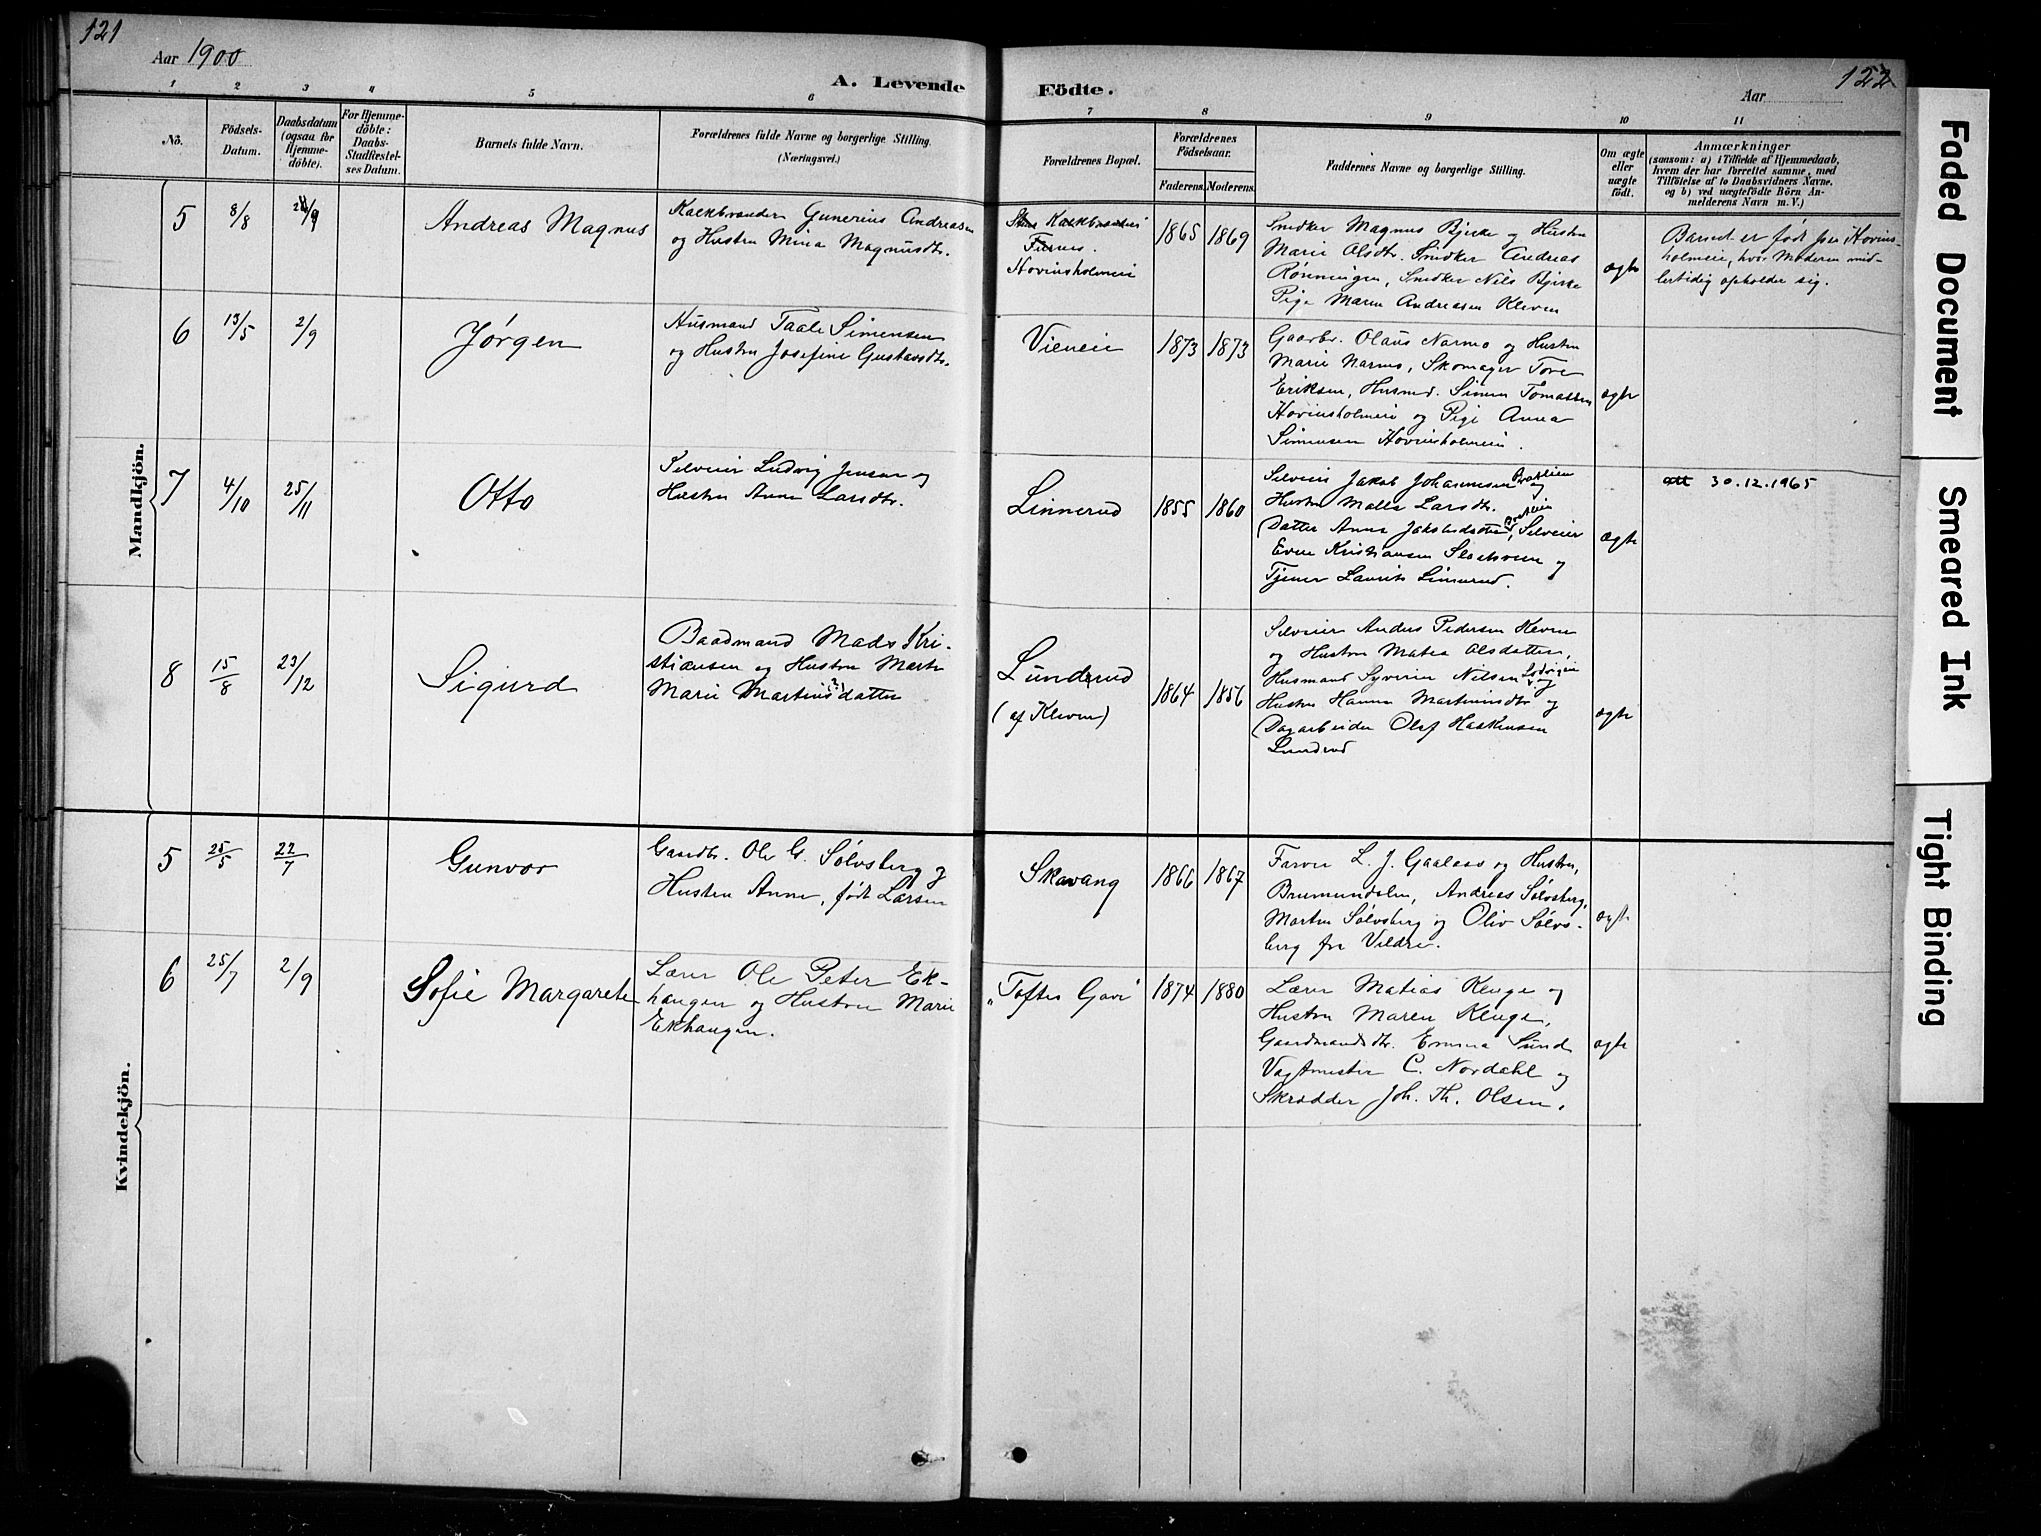 121
Aar 1900
A. Levende Födte.
Aar
122
1 2 3 4 5 6 7 8 9 10 11
No.
Födsels-Datum.
Daabsdatum (ogsaa for Hjemme-döbte).
For Hjemme-döbte: Daabs-Stadfæstel-ses Datum.
Barnets fulde Navn.
Forældrenes fulde Navne og borgerlige Stilling.
(Næringsvei.)
Forældrenes Bopæl.
Forældrenes Födselsaar.
Faderens. Moderens.
Faddernes Navne og borgerlige Stilling.
Om ægte eller uægte födt.
Anmærkninger
(saasom: a) i Tilfælde af Hjemmedaab,
hvem der har forrettet samme, med
Tilföielse af to Daabsvidners Navne.
og b) ved uægtefödte Börn An-
melderens Navn m. V.)
Mandkjön.
5 8/8 Andreas Magnus
Kalkbrænder Gunerius Andreasen
og Hustru Mina Magnusdtr.
Furnes.
Hovinsholmeie
1865 1869
Snedker Magnus Bjerke og Hustru
Marie Olsdtr. Snedker Andreas
Rønningen, Snedker Nils Bjerke
Pige Maren Andreasen Kleven
ægte
Barnet er født paa Hovins-
holmeie, hvor Moderen mid-
lertidig opholder sig.
6 13/5 2/9 Jørgen
Husmand Taale Simensen
og Hustru Josefine Gustavsdtr.
Vieneie
1873 1873
Gaardbr. Olaus Narmo og Hustru
Marie Narmo, Skomager Tore
Eriksen, Husmd. Simen Tomassen
Hovinsholmeie og Pige Anna
Simensen Hovinsholmeie.
ægte
7 4/10 25/11 Otto
Selveier Ludvig Jensen og
Hustru Anne Larsdtr.
Linnerud
1855 1860
Selveier Jakob Johannessen
Hustru Malla Larsdtr.
Datter Anna Jakobsdatter, Selveier
Even Kristiansen og
Tjener Laurits Linnerud.
ægte
30.12.1965
8 15/8 23/12 Sigurd
Baadmand Mads Kri-
stiansen og Hustru Marte
Marie Martinusdatter
Lunderud
(af Kleven)
1864 1856
Selveier Anders Pedersen Kleven
og Hustru Matea Olsdatter,
Husmand Syverin Nilsen og
Hustru Hanna Martinusdtr og
Dagarbeider Olaf Haakensen
Lunderud
ægte
Kvindekjön.
5 25/5 22/7 Gunvor
Gaardbr. Ole G. Sølvsberg og
Hustru Anne, født Larsen
Skavang
1866 1867
Farver L. J. Gaalaas og Hustru,
Brumunddalen, Andreas Sølvsberg,
Marten Sølvsberg og Oliv Sølvs-
berg fra Veldre.
ægte
6 25/7 2/9 Sofie Margarete
Lærer Ole Peter Ek-
haugen og Hustru Marie
Ekhaugen.
„Toftes Gave"
1874 1880
Lærer Matias Kenge og
Hustru Maren Kenge,
Gaardmandsdtr. Emma Sund
Vagtmester C. Nordahl og
Skrædder Joh. Th. Olsen.
ægte
Faded Document
Smeared Ink
Tight Binding